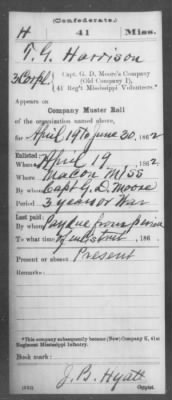 (Confederate.)
H 41 Miss.
T. G. Harrison
3 Corpl, Capt. G. D. Moore's Company
(Old Company I),
41 Reg't Mississippi Volunteers.*
Appears on
Company Muster Roll
of the organization named above,
for April 19 to June 30, 1862
Enlisted:
When April 19, 1862
Where Macon Miss
By whom Capt G. D. Moore
Period 3 years or War
Last paid:
By whom Pay due from period
To what time of enlistment, 186
Present or absent Present
Remarks:
*This company subsequently became (New) Company K, 41st
Regiment Mississippi Infantry.
Book mark:
J. B. Hyatt
Copyist.